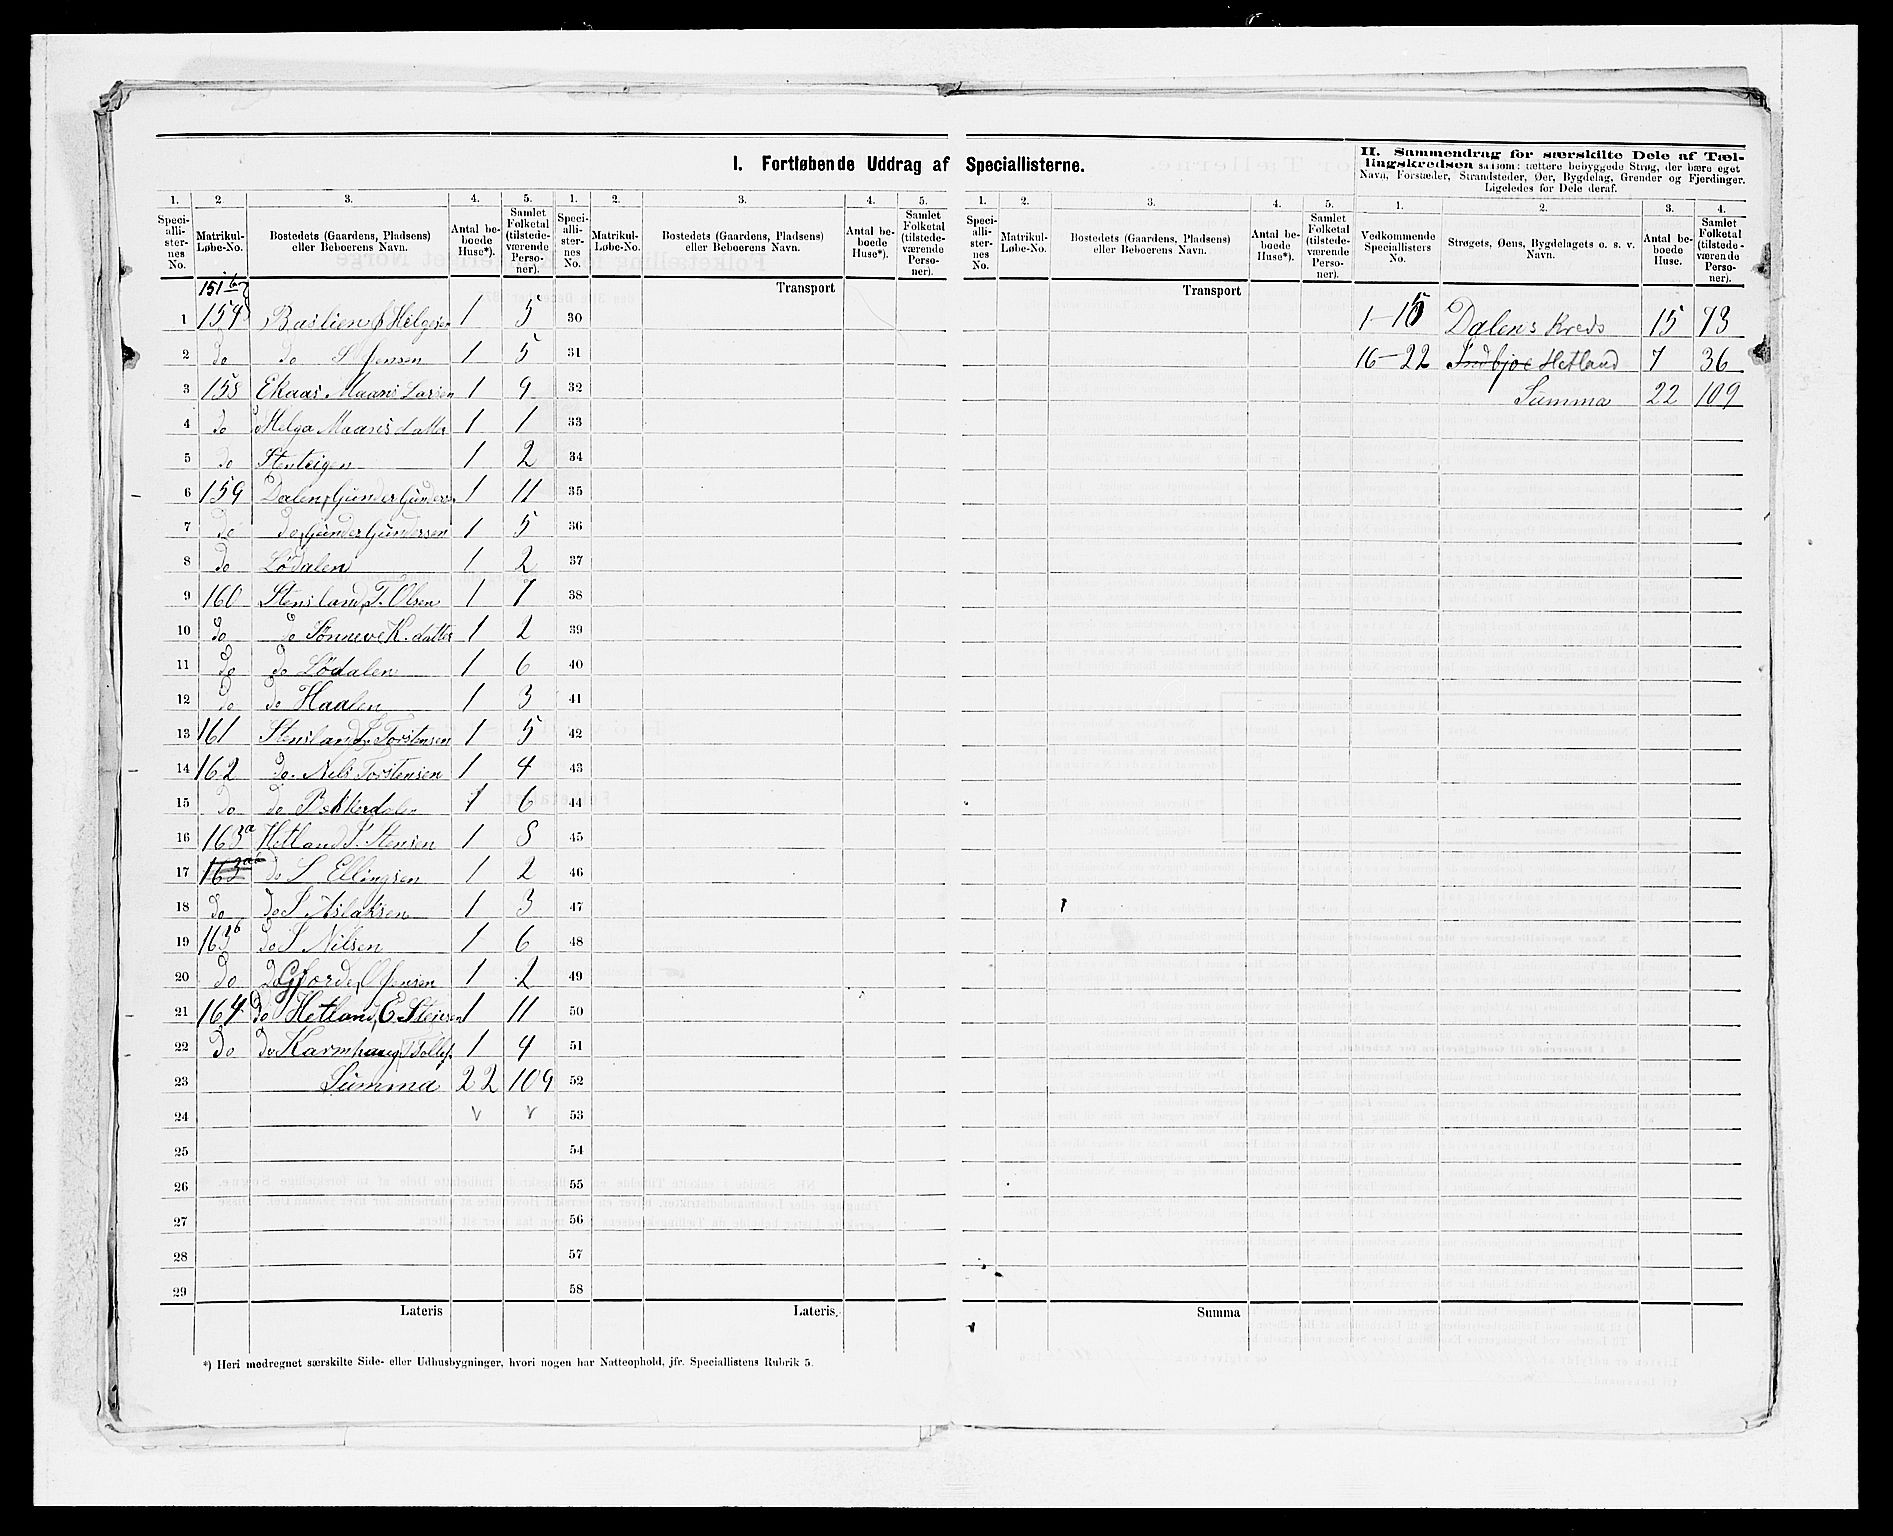 I. Fortløbende Uddrag af Speciallisterne.
II. Sammendrag for særskilte Dele af Tæl-
lingskredsen saasom: tættere bebyggede Strøg, der bære eget
Navn, Forstæder, Strandsteder, Øer, Bygdelag, Grender og Fjerdinger.
Ligeledes for Dele deraf.
1. 2 3. 4. 5. 1. 2. 3. 4. 5. 1. 2. 3. 4. 5. 1. 2. 3. 4.
Speci-alli-ster-nes No. Matrikul-Løbe-No. Bostedets (Gaardens, Pladsens) eller Beboerens Navn. Antal be-boede Huse*). Samlet Folketal (tilstede-værende Perso-ner).
Speci-alli-ster-nes No. Matrikul-Løbe-No. Bostedets (Gaardens, Pladsens) eller Beboerens Navn. Antal be-boede Huse*). Samlet Folketal (tilstede-værende Perso-ner).
Speci-alli-ster-nes No. Matrikul-Løbe-No. Bostedets (Gaardens, Pladsens) eller Beboerens Navn. Antal be-boede Huse*). Samlet Folketal (tilstede-værende Perso-ner).
Vedkommende Speciallisters No. Strøgets, Øens, Bygdelagets o. s. v. Navn. Antal be-boede Huse. Samlet Folketal (tilstede-værende Perso-ner).
Transport
Transport
1 Helgesen 1 5 30
2 do do Jensen 1 5 31
3 158 Ekaas Maans Larsen 1 9 32
4 do Helga Maansdatter 1 1 33
5 do Stenteigen 1 2 34
6 159 Dalen, Gunder Gunders. 1 11 35
7 do do Gunder Gundersen 1 5 36
8 do Lødalen 1 2 37
9 160 Stensland, T. Olsen 1 7 38
10 do do Sønneve K. datter 1 2 39
11 do do Lødalen 1 6 40
12 do do Haalen 1 3 41
13 161 Stensland Torstensen 1 5 42
14 162 do. Nils Torstensen 1 4 43
15 do do 1 6 44
16 163a Hetland Stensen 1 8 45
17 do S Ellingsen 1 2 46
18 do do S Aslaksen 1 3 47
19 163b do S Nilsen 1 6 48
20 do do Gjorde, O Jensen 1 2 49
21 164 do Hetland, E. Stensen 1 11 50
22 do do Karmhaug 1 4 51
23 Summa 22 109 52
24 53
25 54
26 55
27 56
28 57
29 58
Lateris Lateris. Summa
1-15 Dalens Kreds 15 73
16-22 Hetland 7 36
Summa 22 109
*) Heri medregnet særskilte Side- eller Udhusbygninger, hvori nogen har Natteophold, jfr. Speciallistens Rubrik 5.